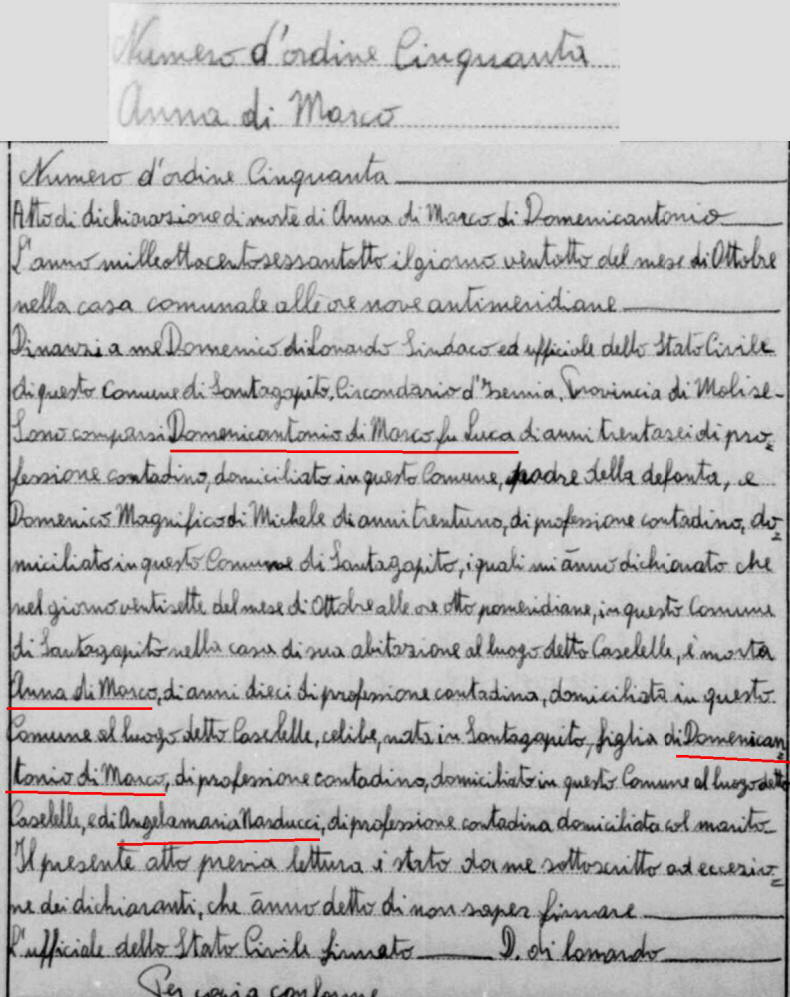 Numero d'ordine Cinquanta
Anna di Marco
Numero d'ordine Cinquanta
Atto di dichiarazione di morte di Anna di Marco di Domenicantonio
L'anno milleottocentosessantotto il giorno ventotto del mese di Ottobre
nella casa comunale alle ore nove antimeridiane
Dinanzi a me Domenico di Lonardo Sindaco ed uffiziale dello Stato Civile
di questo Comune di Santagapito, Circondario d'Isernia, Provincia di Molise-
Sono comparsi Domenicantonio di Marco fu Luca di anni trentasei di pro=
fessione contadino, domiciliato in questo Comune, padre della defonta, e
Domenico Magnifico di Michele di anni trentuno, di professione contadino, do=
miciliato in questo Comune di Santagapito, i quali mi ānno dichiarato che
nel giorno ventisette del mese di Ottobre alle ore otto pomeridiane, in questo Comune
di Santagapito nella casa di sua abitazione al luogo detto Caselelle, è morta
Anna di Marco, di anni dieci di professione contadina, domiciliata in questo
Comune al luogo detto Caselelle, celibe, nata in Santagapito, figlia di Domenican
tonio di Marco, di professione contadino, domiciliato in questo Comune al luogo detto
Caselelle, e di Angelamaria Narducci, di professione contadina domiciliata col marito
Il presente atto previa lettura è stato da me sottoscritto ad eccezio=
ne dei dichiaranti, che ānno detto di non saper firmare
L'uffiziale dello Stato Civile firmato D. di Lonardo
Per copia conforme